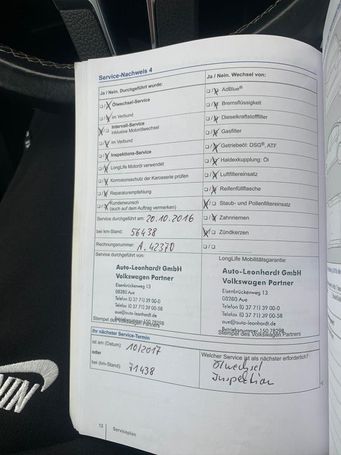 Service-Nachweis 4
Ja / Nein. Durchgeführt wurde:
Ölwechsel-Service
im Verbund
Intervall-Service
inklusive Motorölwechsel
im Verbund
Inspektions-Service
LongLife Motoröl verwendet
Korrosionsschutz der Karosserie prüfen
Reparaturempfehlung
Kundenwunsch
(auch auf dem Auftrag vermerken)
Service durchgeführt am: 20.10.2016
bei km-Stand: 56438
Rechnungsnummer: A. 42370
Service durchgeführt von:
Auto-Leonhardt GmbH
Volkswagen Partner
Eisenbrückenweg 13
08280 Aue
Telefon (0 37 71) 39 00-0
Telefax (0 37 71) 39 00-58
aue@auto-leonhardt.de
Stempel des Volkswagen Partners
Ihr nächster Service-Termin
ist am (Datum) 10/2017
oder
bei (km-Stand): 71438
Ja / Nein. Wechsel von:
AdBlue®
Bremsflüssigkeit
Dieselkraftstofffilter
Gasfilter
Getriebeöl: DSG®, ATF
Haldexkupplung: Öl
Luftfiltereinsatz
Reifenfüllflasche
Staub- und Pollenfiltereinsatz
Zahnriemen
Zündkerzen
LongLife Mobilitätsgarantie:
Auto-Leonhardt GmbH
Volkswagen Partner
Eisenbrückenweg 13
08280 Aue
Telefon (0 37 71) 39 00-0
Telefax (0 37 71) 39 00-58
aue@auto-leonhardt.de
Stempel des Volkswagen Partners
Welcher Service ist als nächster erforderlich?
Ölwechsel
Inspektion
12 Serviceplan